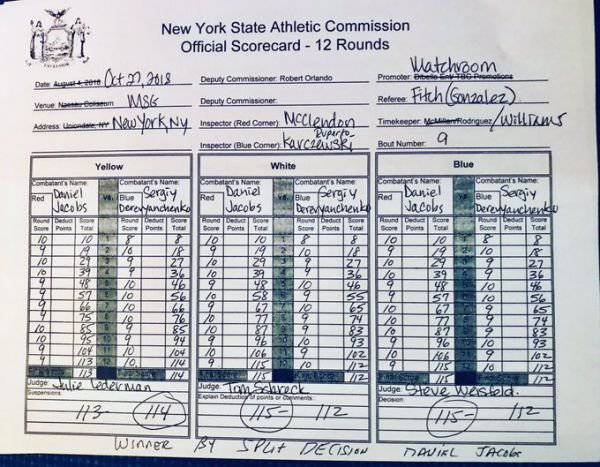 New York State Athletic Commission
Official Scorecard - 12 Rounds
Date: August 4, 2018 Oct 27, 2018 Deputy Commissioner: Robert Orlando Matchroom
Promoter: Dibella Ent/ TBG Promotions
Venue: Nassau Coliseum MSG Deputy Commissioner: Referee: Fitch (Gonzalez)
Address: Uniondale, NY New York, NY Inspector (Red Corner): McClendon Timekeeper: McMillan/Rodriguez / Williams
Inspector (Blue Corner): Karczewski Bout Number: 9
Yellow White Blue
Combatant's Name: Combatant's Name: Combatant's Name: Combatant's Name: Combatant's Name: Combatant's Name:
Red Daniel Jacobs vs. Blue Sergiy Derevyanchenko Red Daniel Jacobs vs. Blue Sergiy Derevyanchenko Red Daniel Jacobs vs. Blue Sergiy Derevyanchenko
Round Score Deduct Points Score Total Round Score Deduct Points Score Total Round Score Deduct Points Score Total Round Score Deduct Points Score Total Round Score Deduct Points Score Total Round Score Deduct Points Score Total
10 10 1 8 8 10 10 1 8 8 10 10 1 8 8
9 19 2 10 18 9 19 2 10 18 9 19 2 10 18
10 29 3 9 27 10 29 3 9 27 10 29 3 9 27
10 39 4 9 36 10 39 4 9 36 10 39 4 9 36
9 48 5 10 46 9 48 5 10 46 9 48 5 10 46
9 57 6 10 56 10 58 6 9 55 9 57 6 10 56
9 66 7 10 66 9 67 7 10 65 10 67 7 9 65
9 75 8 10 76 10 77 8 9 74 10 77 8 9 74
10 85 9 9 85 10 87 9 9 83 10 87 9 9 83
10 95 10 9 94 9 96 10 10 93 9 96 10 10 93
9 104 11 10 104 10 106 11 9 102 10 106 11 9 102
9 113 12 10 114 9 115 12 10 112 9 115 12 10 112
113 114 115 112 115 112
Judge: Julie Lederman Judge: Tom Schreck Judge: Steve Weisfeld
Suspensions: Explain Deduction of points or comments: Decision:
113- 114 115- 112 115- 112
WINNER BY SPLIT DECISION DANIEL JACOBS